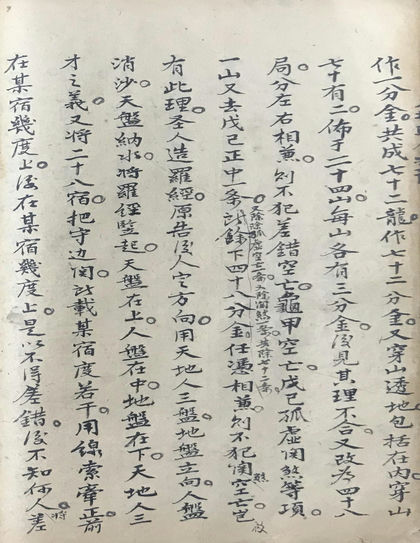 作一分金共成七十二龍作七十二分金又穿山透地包括在内穿山
七十有二佈于二十四山每山各有三分金後見其理不合又改為四十八
局分左右相兼則不犯差錯空亡龜甲空亡戊己孤虛関煞等項
一山又去戊己正中一条
只餘下四十八分金任憑相兼則不犯関空亡
有此理圣人造羅經原告後人定方向用天地人三盤地盤立向人盤
消沙天盤納水將羅經竪起天盤在上人盤在中地盤在下天地人三
才之義又將二十八宿把守边関註載某宿度若干用線索牽正前
在某宿幾度上後在某宿幾度上是以不得差錯後不知何人差
將